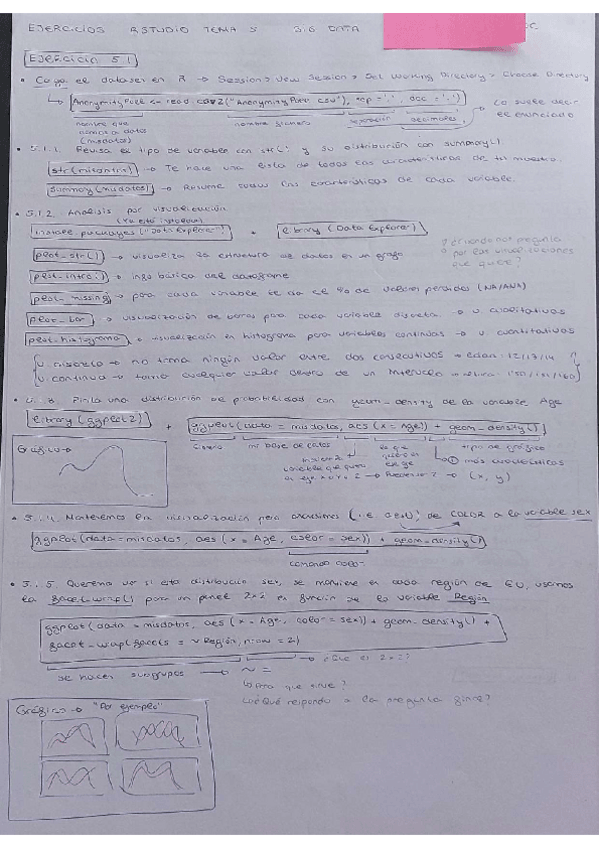 EJERCICIOS RSTUDIO TEMA 5 BIG DATA
Ejercicio 5.1
• Carga el dataset en R → Session > New Session > Set Working Directory > Choose Directory
AnonymityPoll <- read.csv2("AnonymityPoll.csv"), sep = ',', dec = '.')
Lo suele decir
el enunciado
nombre que nombre fichero separación decimales
datos
(misdatos)
• 5.1.1. Revisa el tipo de variables con str() y su distribución con summary()
str(misdatos) → Te hace una lista de todas las características de tu muestra.
summary(misdatos) → Resume todas las características de cada variable.
• 5.1.2. Analisis por visualización
install.packages("DataExplorer") • library(DataExplorer)
plot_str() → visualiza la estructura de datos en un grafo
plot_intro() → info básica del dataframe
plot_missing → para cada variable te da el % de valores perdidos (NA/AUX)
plot_bar → visualización de barras para cada variable discreta → v. cualitativas
plot_histograma → visualización en histograma para variables continuas → v. cuantitativas
v. discreta → no toma ningún valor entre dos consecutivos → edad: 12/13/14
v. continua → toma cualquier valor dentro de un intervalo
• 5.1.3. Pinta una distribución de probabilidad con geom_density de la variable Age
library(ggplot2) + ggplot(data = misdatos, aes(x = Age)) + geom_density()
Gráfico → mi base de datos tipo de gráfico
(x, y)
• 5.1.4. Mantenemos la visualización pero de COLOR a la variable sex
ggplot(data = misdatos, aes(x = Age, color = sex)) + geom_density()
comando color
• 5.1.5. Queremos ver si esta distribución se mantiene en cada región de EU, usamos
la facet_wrap() para un panel 2x2 en función de la variable Región
ggplot(data = misdatos, aes(x = Age, color = sex)) + geom_density() +
facet_wrap(facets = ~ Región, nrow = 2)
se hacen subgrupos → ~ =
¿Para que sirve?
¿Qué respondo a la pregunta
Gráfico → "Por ejemplo"